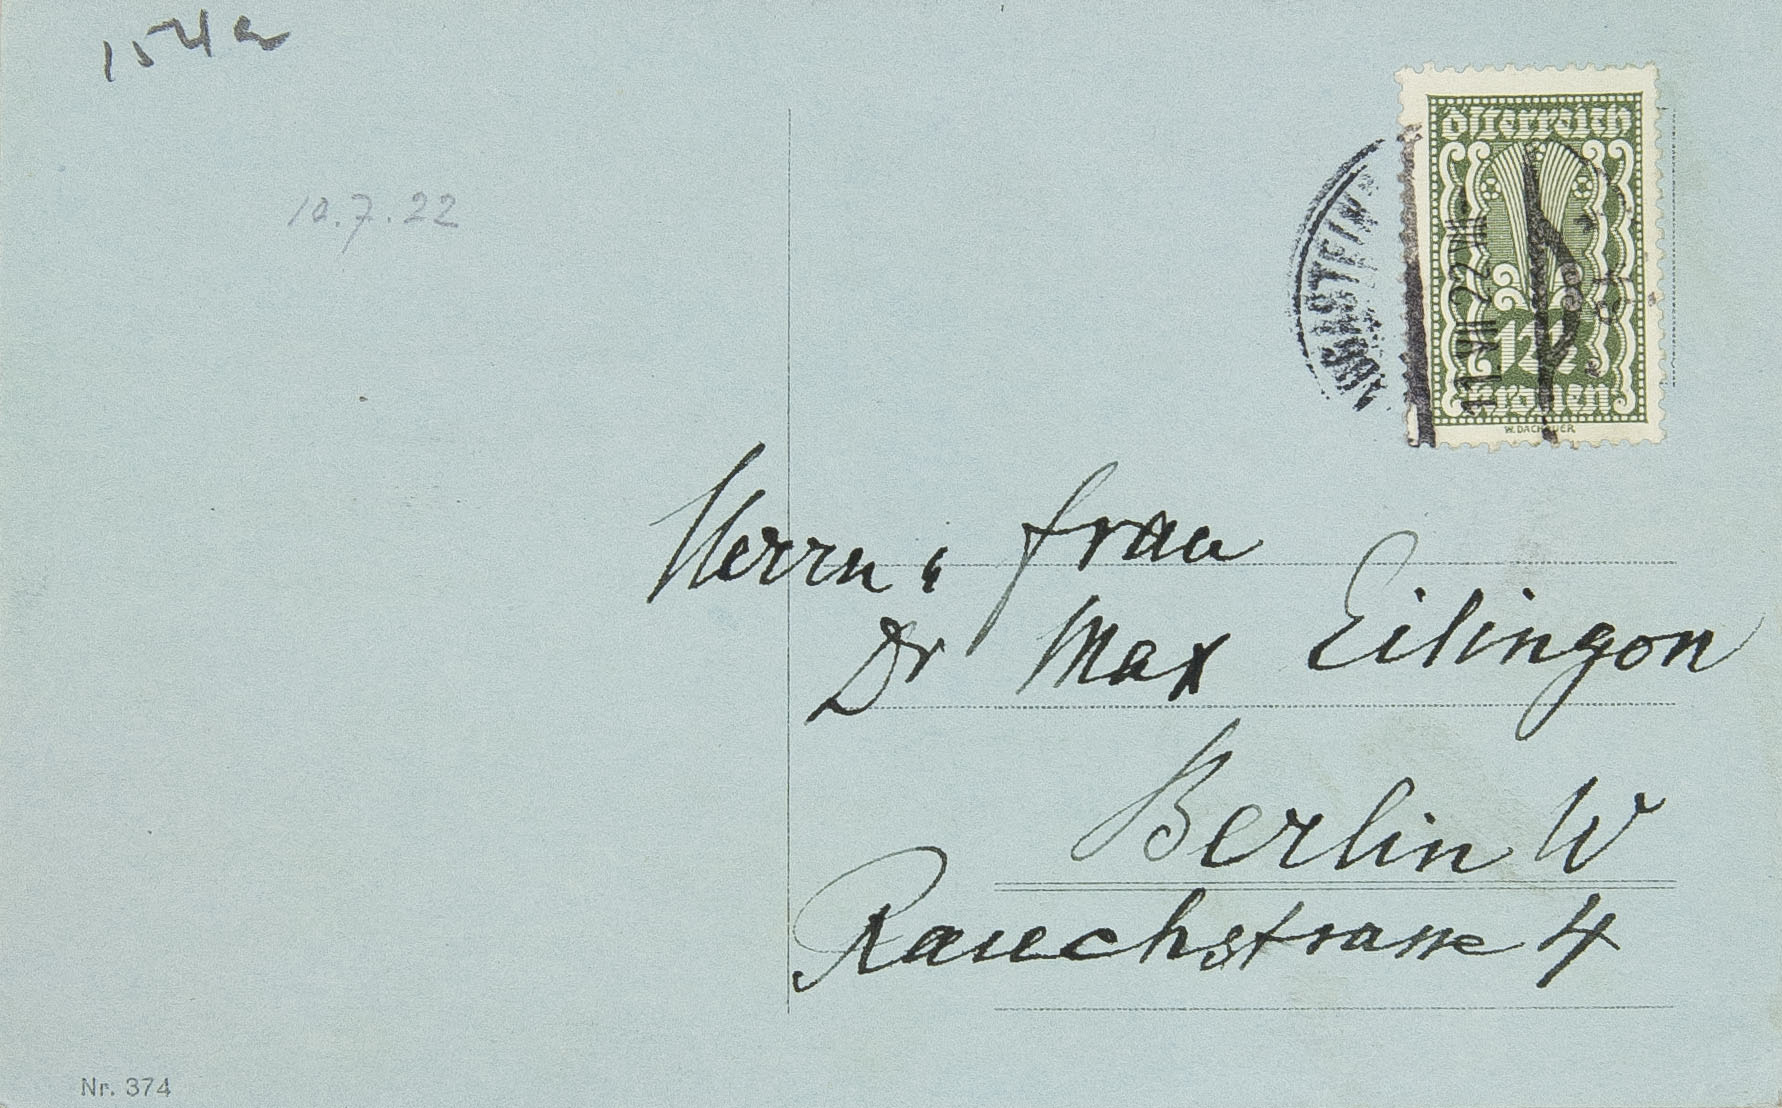 154a
10.7.22
Österreich
11.VII.22
Kronen
W. DACHAUER
Herrn u Frau
Dr Max Eilingon
Berlin W
Rauchstrasse 4
Nr. 374